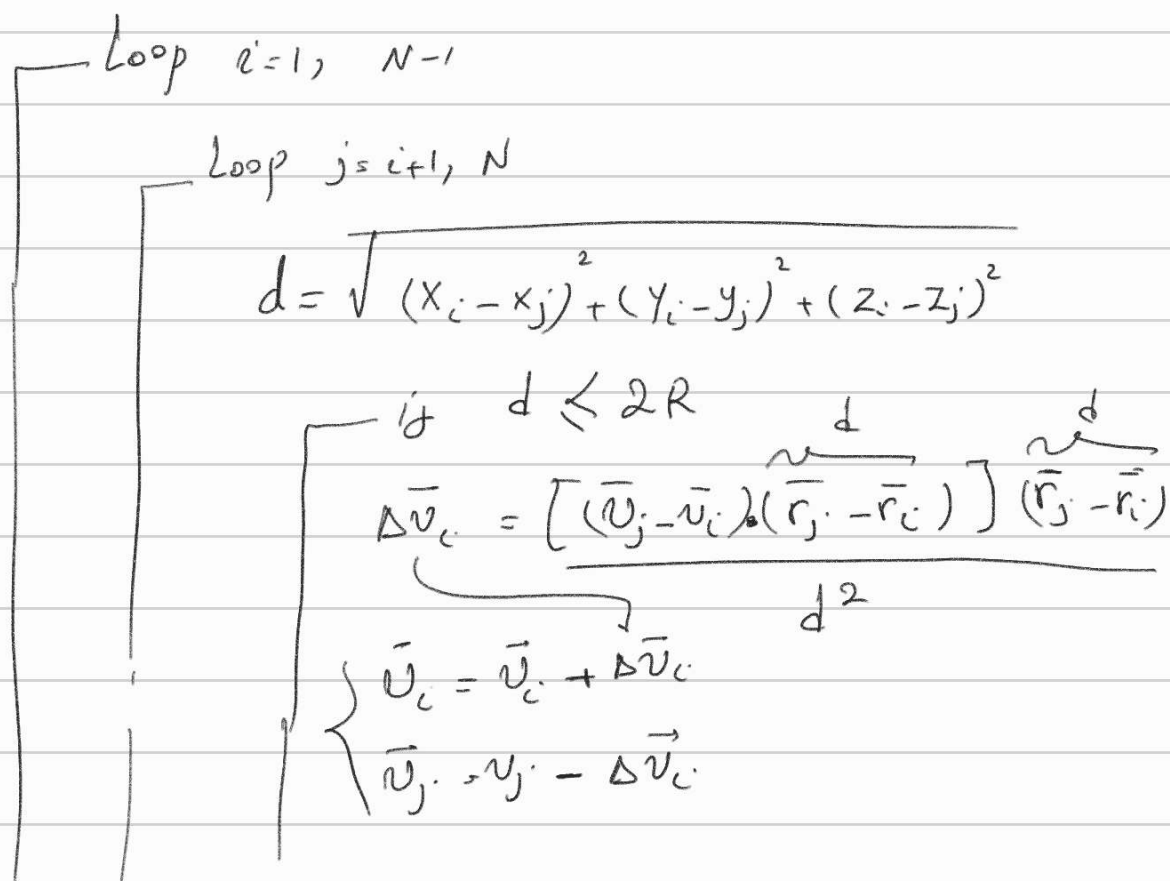 Loop i=1, N-1
Loop j=i+1, N
d = √((x_i - x_j)² + (y_i - y_j)² + (z_i - z_j)²)
if d ≤ 2R
d d
Δv̄_i = [(v̄_j - v̄_i).(r̄_j - r̄_i)] (r̄_j - r̄_i)
d²
v̄_i = v̄_i + Δv̄_i
v̄_j = v_j - Δv⃗_i